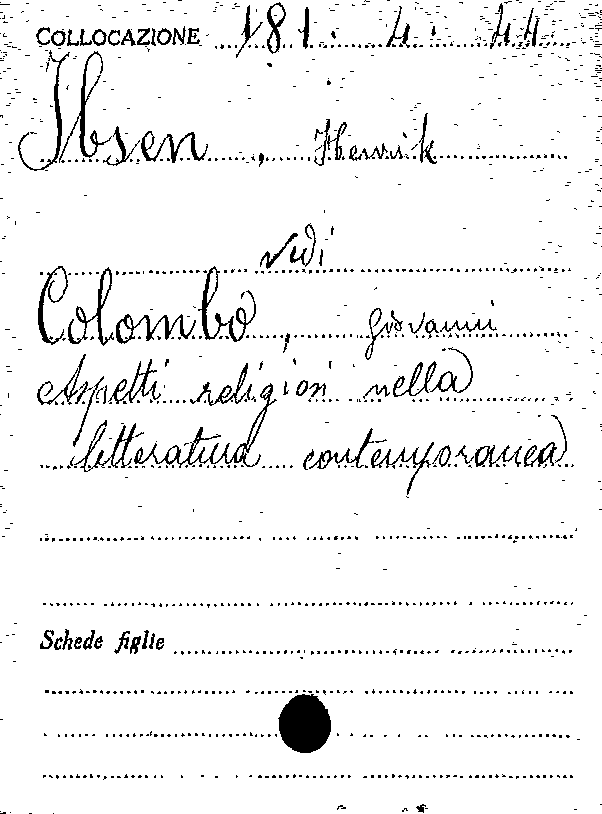 COLLOCAZIONE 181. 4. 44
Ibsen, Henrik
vedi
Colombo, Giovanni
Aspetti religiosi nella
letteratura contemporanea
Schede figlie